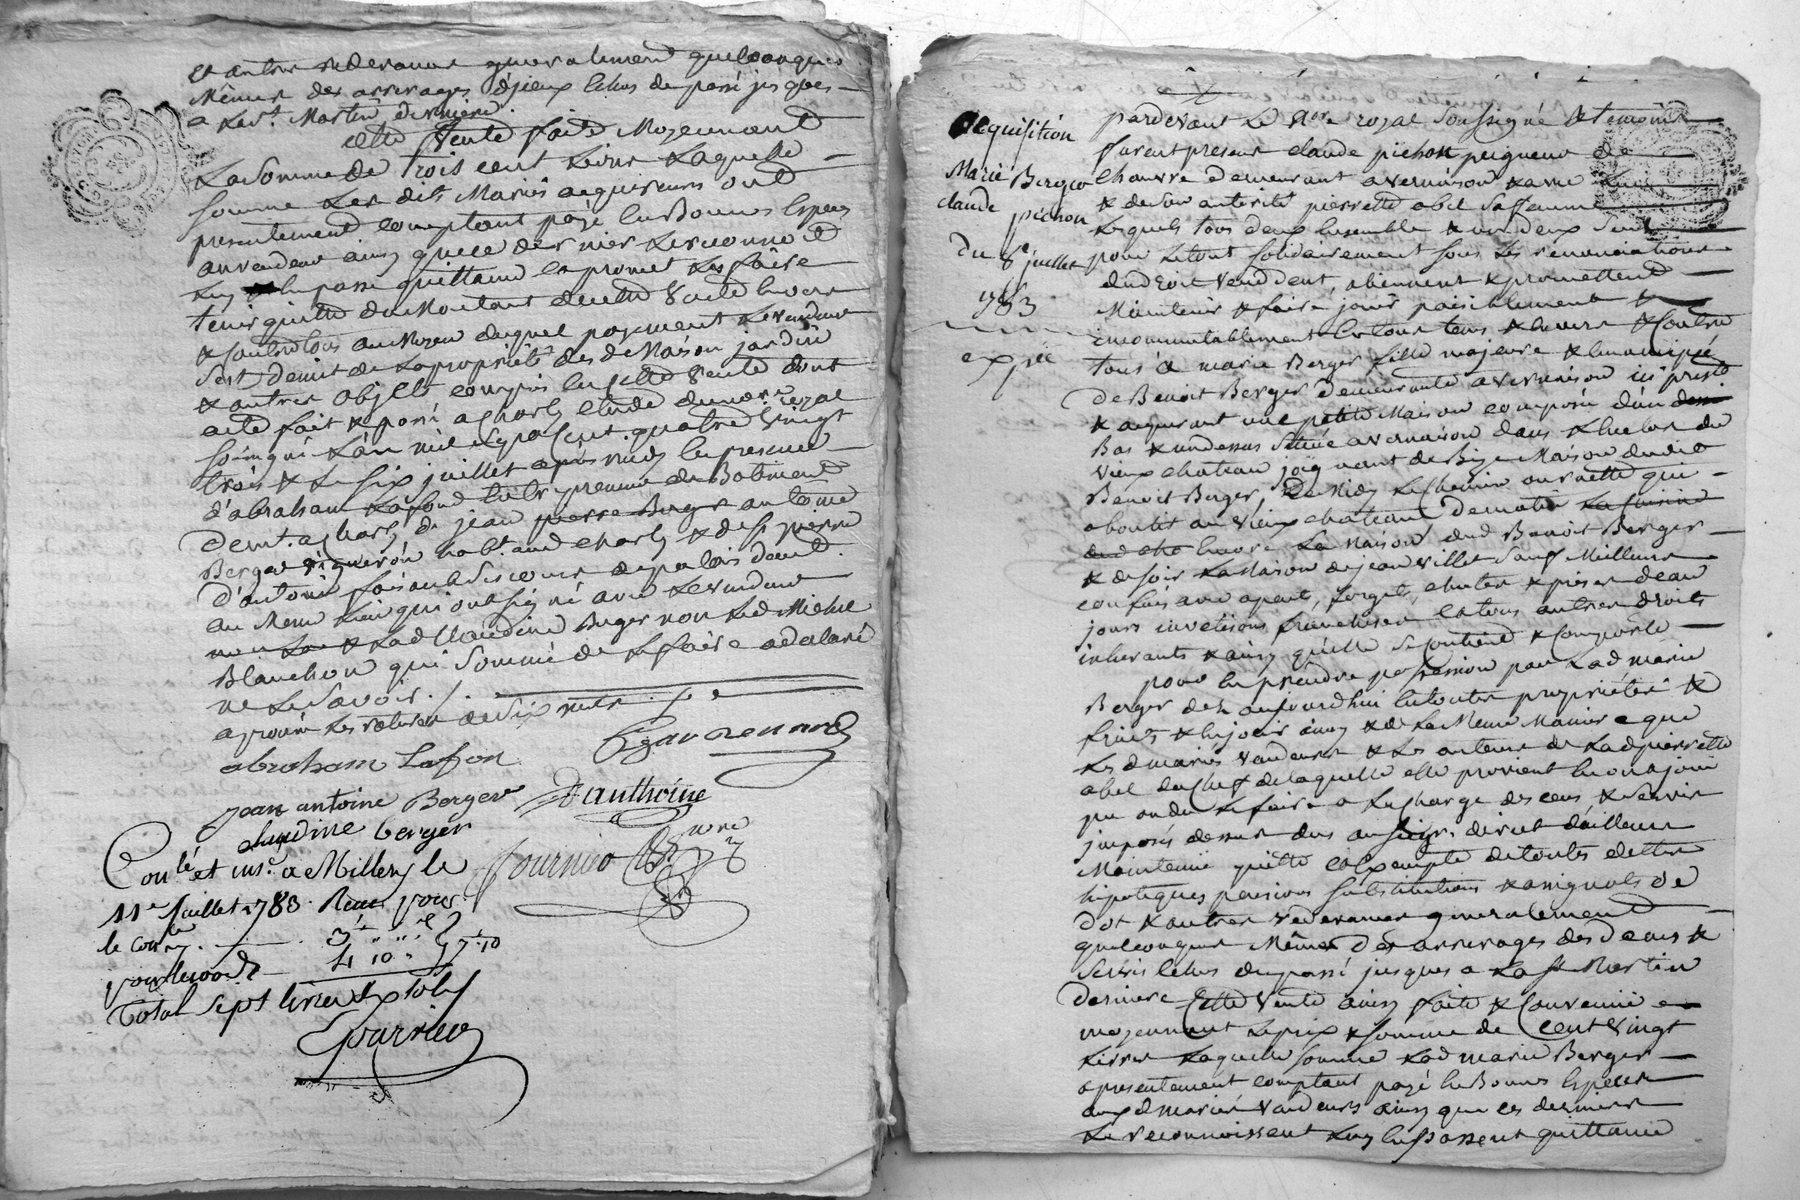 et autres redevances generalement quelconques
Même des arrerages d'jceux Echus du passé jusques
a la st. Martin derniere.
cette Vente faite Moyennant
La Somme de Trois cent Livres Laquelle
somme Les dits Mariés acquereurs ont
presentement comptant payé En Bonnes Espèces
au vendeur ainsy que ce dernier Le reconnoit
Luy En passe quittance et promet Les faire
tenir quitte du Montant de cette Vente Envers
& contre tous au Moyen duquel payement Le vendeur
s'est demit de La propriété des de Maison jardin
& autres objets compris En cette Vente dont
acte fait & passé a Charly Etude du nore royal
soussigné L'an mil Sept Cent quatre Vingt
trois & Le Six juillet après midy En presence
d'abraham Lafond Entrepreneur de Batiment
demt. a Charly, de jean pierre Berger antoine
Berger Vigneron habt. aud Charly & de Sr pierre
d'antoine
au Meme Lieu qui ont signé avec Le vendeur
& Lad Claudine Berger non Led Michel
Blanchon qui Sommé de Le faire a declaré
ne Le Savoir ./.
aprouvé Les ratures de Six mots ./.
abraham Lafon
jean antoine Berger D'anthoine
claudine berger
Conlé et ins.é a Millery le
11e Juillet 1783. Reçu pour
le conle. 3 " "
4 10 " 7 . 10
Total sept livres dix sols
acquisition
Marie Berger
claude pichon
Du 6e juillet
1783
expiée
pardevant Le Nore royal Soussigné & temoins
furent present claude pichon peigneur de
chanvre demeurant a vernaison & avec Luy
& de Son autorité pierrette abel Sa femme
Lesquels tous deux Ensemble & un deux Seul
pour Le tout Solidairement Sous Les renonciations
du droit Venddent, abienent & promettent
Maintenir & faire jouir paisiblement &
incommutablement En tous tems & Envers & Contre
tous a marie Berger fille majeure & Emancipée
De Benoit Berger demeurante a vernaison ici presente
& aquerant une petite Maison composée d'un
Bas & un dessus Située a vernaison dans L'Enclos du
vieux chateau joignant de Bize Maison dudit
Benoit Berger, de Midy Le chemin ou ruette qui
aboutit au Vieux chateau De matin
Encore La Maison dud Benoit Berger
& de Soir La Maison de jean Villet Sauf Meilleurs
confins avec apent, forget, chutes & prises d'eau
jours invetisons franchises & tous autres droits
inherants & ainsy qu'elle Se contient & Comporte
pour En prendre possession par Lad marie
Berger dez aujourd'hui En toutes propriétés &
fruits & En jouir ainsy & de La Meme Maniere que
Les d mariés Vendeurs & Les auteurs de Lad pierrette
abel du Chef de laquelle elle provient En ont joui
pu ou du Le faire a La Charge des cens & Servis
jmposés dessus dus au Seigr. direct dailleurs
Maintenue quitte & Exempte de toutes dettes
hipoteques pensions Substitutions & assignats de
dot & autres redevances generalement
quelconques Même Des arrerages des d cens &
Servis Echus du passé jusques a La St Martin
Derniere Cette Vente ainsy faite & Convenüe
moyennant Le prix & somme de Cent Vingt
Livres Laquelle Somme Lad marie Berger
a presentement comptant payé En Bonnes Especes
aux d mariés Vendeurs ainsy que ces derniers
Le reconnoissent Luy En passent quittance